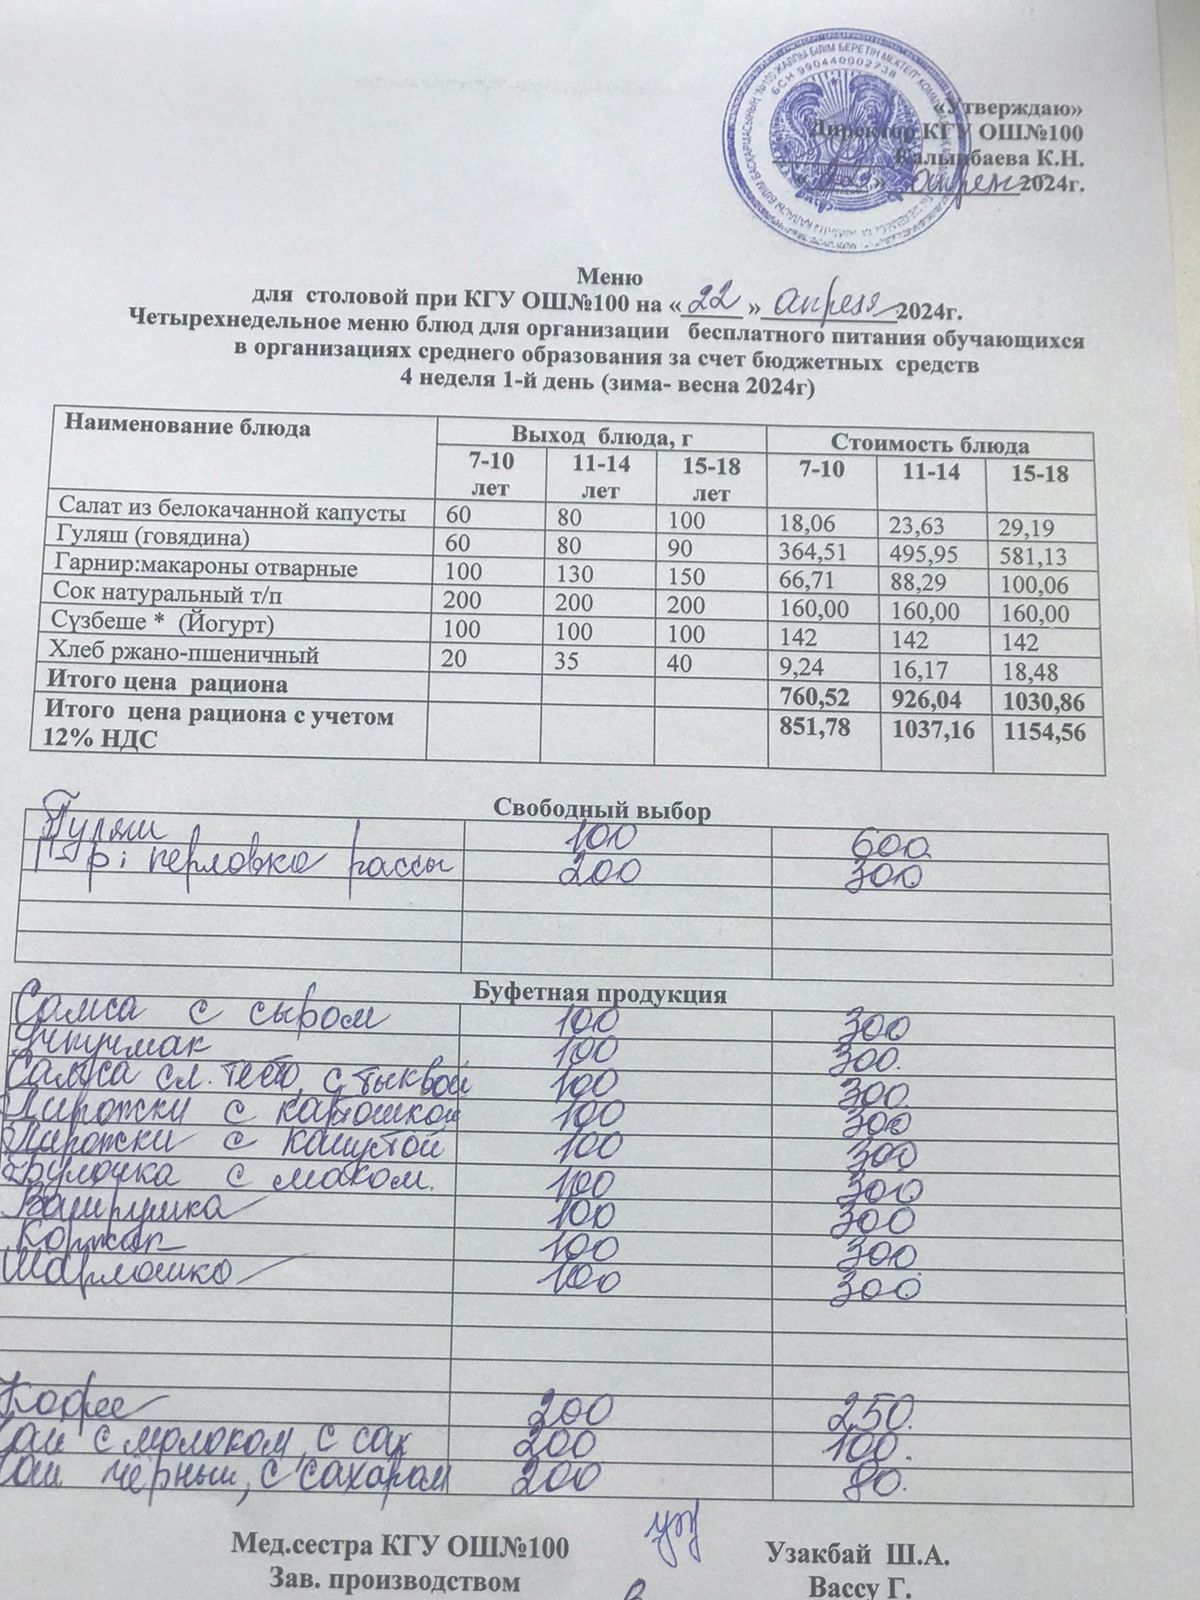 «Утверждаю»
Директор КГУ ОШ№100
Калыпбаева К.Н.
« » апрель 2024г.
БСН 990440002738
Меню
для столовой при КГУ ОШ№100 на « 22 » апреля 2024г.
Четырехнедельное меню блюд для организации бесплатного питания обучающихся
в организациях среднего образования за счет бюджетных средств
4 неделя 1-й день (зима- весна 2024г)
Наименование блюда Выход блюда, г Стоимость блюда
7-10 лет 11-14 лет 15-18 лет 7-10 11-14 15-18
Салат из белокачанной капусты 60 80 100 18,06 23,63 29,19
Гуляш (говядина) 60 80 90 364,51 495,95 581,13
Гарнир:макароны отварные 100 130 150 66,71 88,29 100,06
Сок натуральный т/п 200 200 200 160,00 160,00 160,00
Сүзбеше * (Йогурт) 100 100 100 142 142 142
Хлеб ржано-пшеничный 20 35 40 9,24 16,17 18,48
Итого цена рациона 760,52 926,04 1030,86
Итого цена рациона с учетом 851,78 1037,16 1154,56
12% НДС
Свободный выбор
Гуляш 100 600
Г-р: перловка рассы 200 300
Буфетная продукция
Самса с сыром 100 300
Учпучмак 100 300.
Самса сл. тесто, с тыквой 100 300
Пирожки с картошкой 100 300
Пирожки с капустой 100 300
Булочка с маком. 100 300
Ватрушка 100 300
Коржик 100 300.
100 300
Кофее 200 250.
Чай с молоком, с сах 200 100.
Чай чёрный, с сахаром 200 80.
Мед.сестра КГУ ОШ№100 Узакбай Ш.А.
Зав. производством Вассу Г.